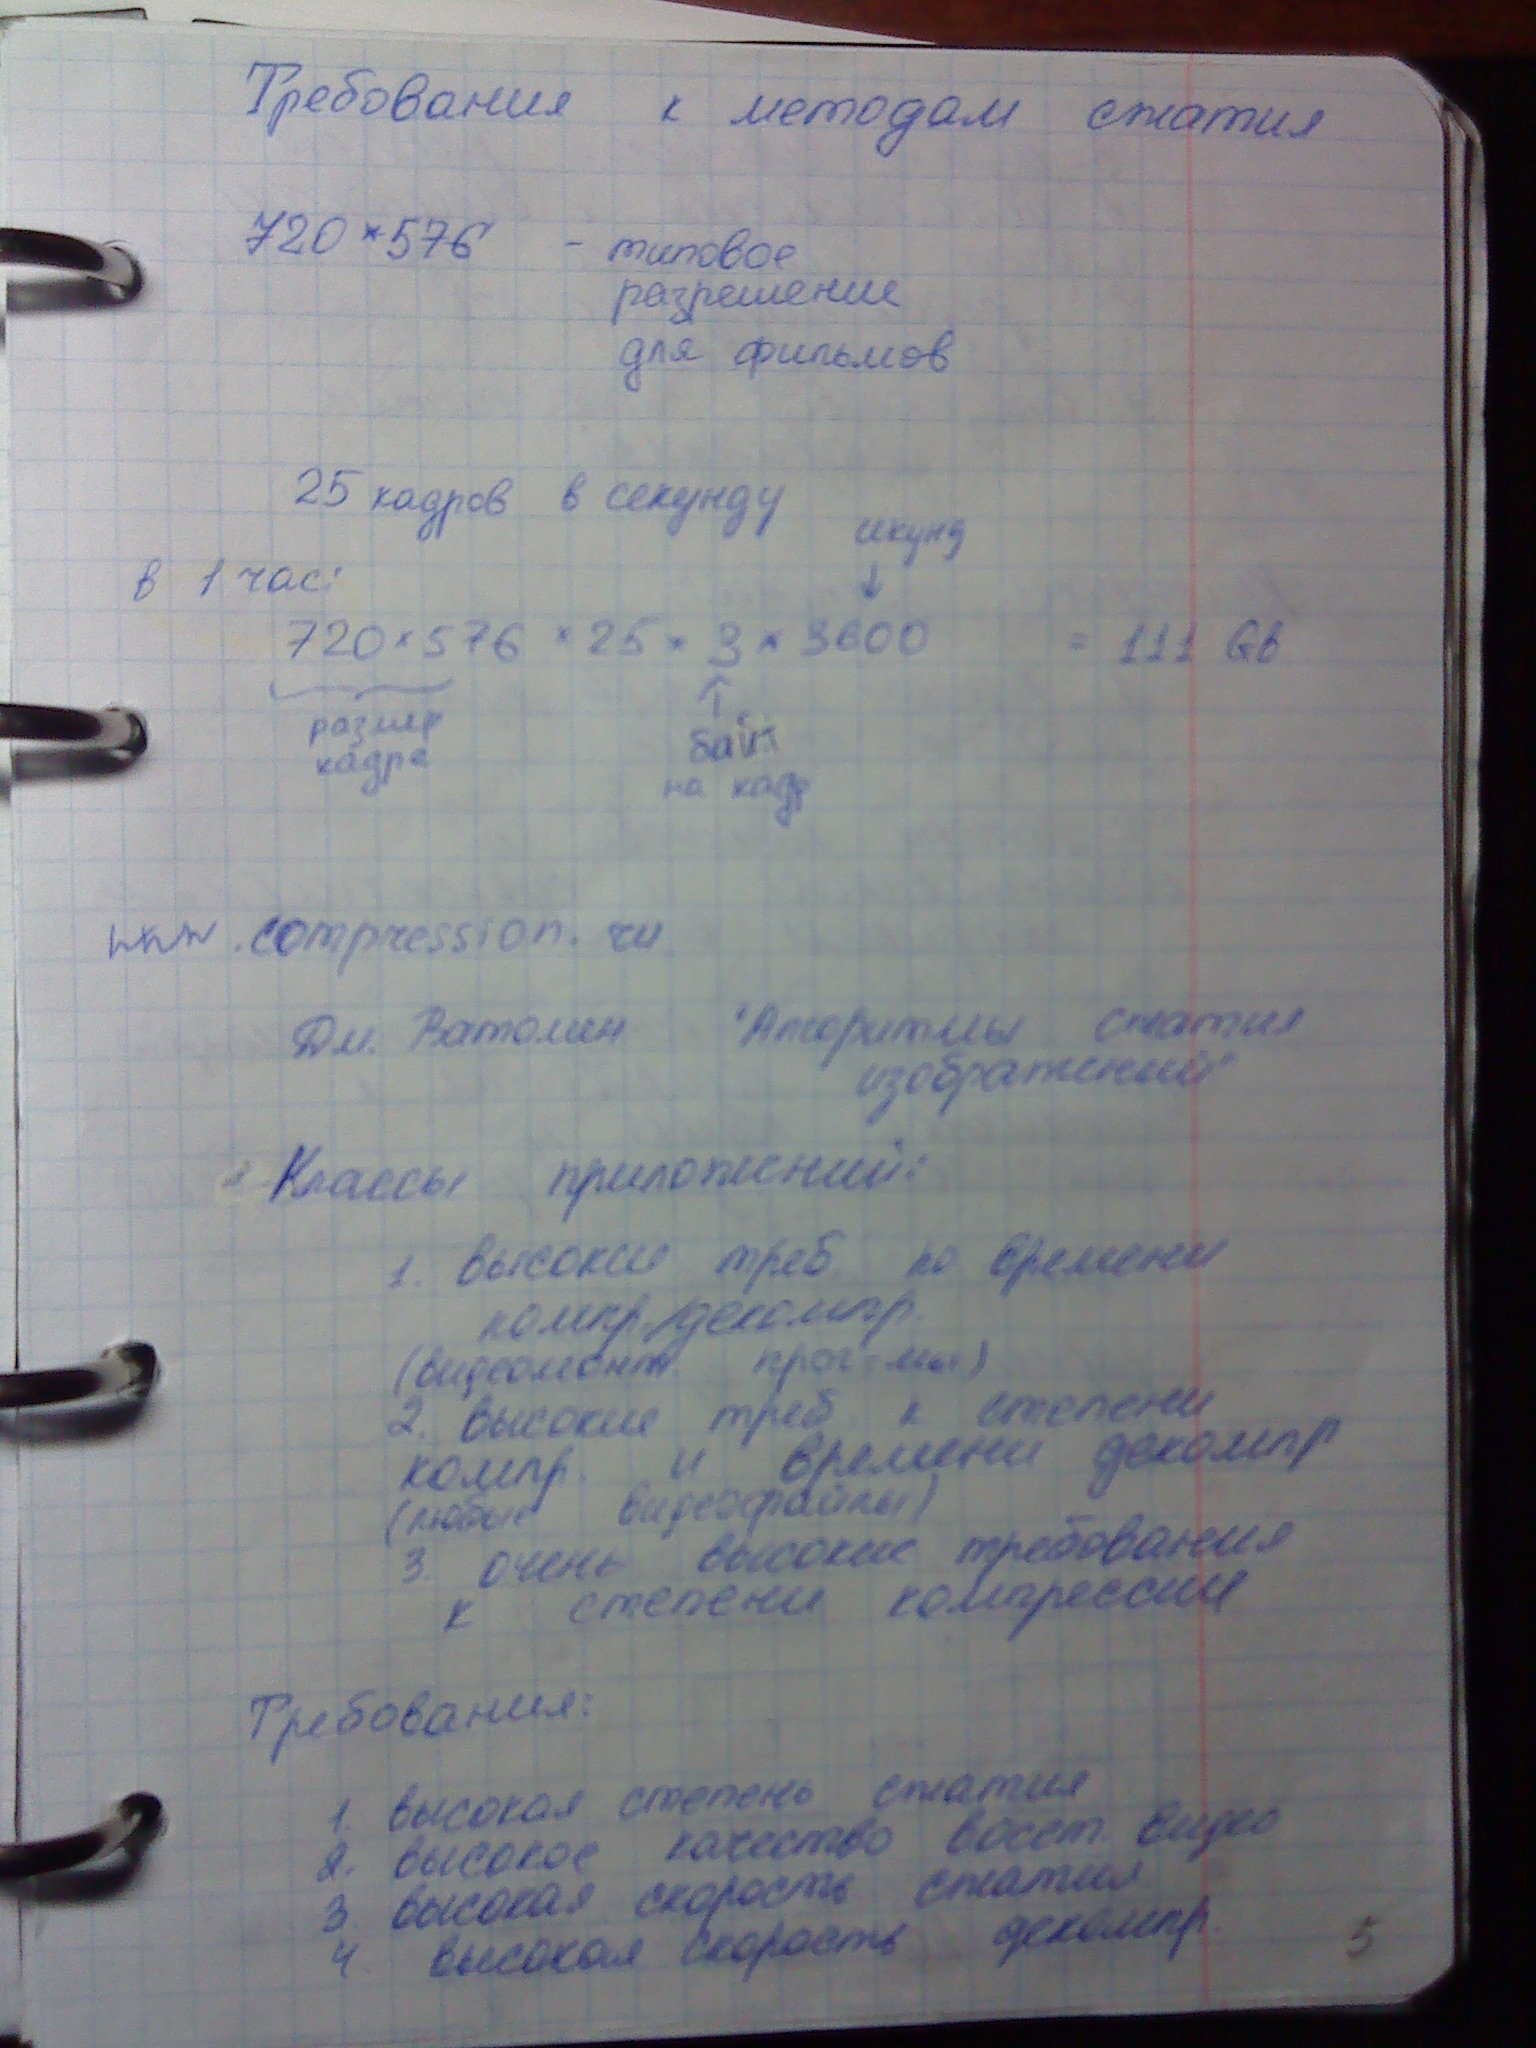 Требования к методам сжатия
720 × 576 - типовое
разрешение
для фильмов
25 кадров в секунду
секунд
↓
в 1 час:
720 × 576 × 25 × 3 × 3600 = 111 Gb
размер
кадра
↑
байт
на кадр
www.compression.ru
Дм. Ватолин "Алгоритмы сжатия
изображений"
Классы приложений:
1. высокие треб. по времени
компр./декомпр.
(видеомонт. прог-мы)
2. высокие треб. к степени
компр. и времени декомпр
(любые видеофайлы)
3. очень высокие требования
к степени компрессии
Требования:
1. высокая степень сжатия
2. высокое качество восст. видео
3. высокая скорость сжатия
4. высокая скорость декомпр.
5